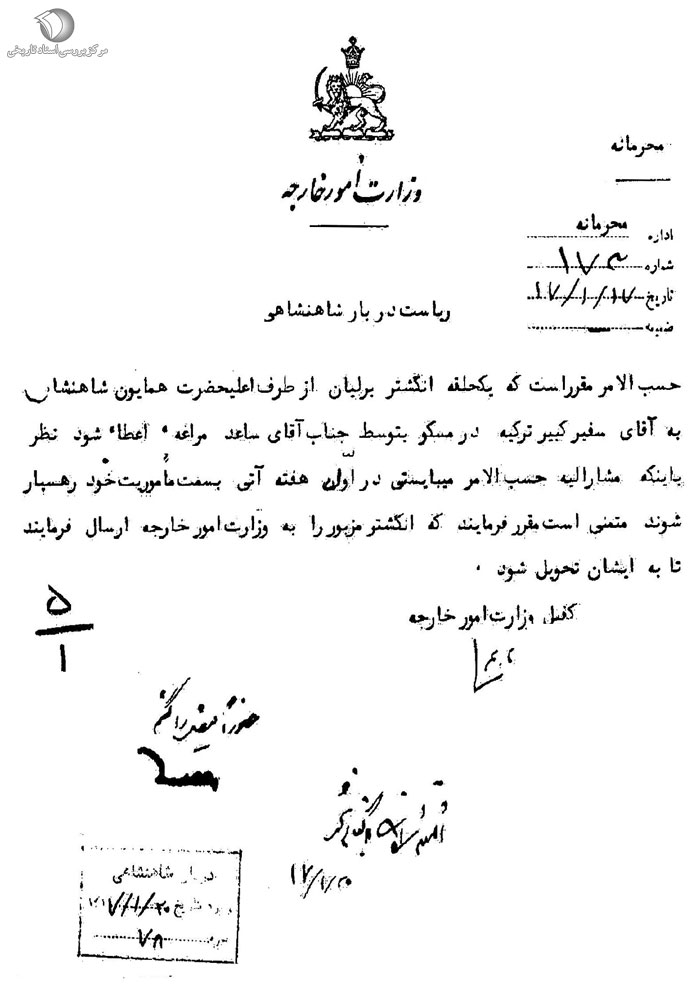 مرکز بررسی اسناد تاریخی
وزارت امور خارجه
محرمانه
اداره محرمانه
شماره ۱۷۳
تاریخ ۱۷/۱/۱۷
ضمیمه
ریاست دربار شاهنشاهی
حسب الامر مقرراست که یکحلقه انگشتر برلیان از طرف اعلیحضرت همایون شاهنشاهی
به آقای سفیر کبیر ترکیه در مسکو بتوسط جناب آقای ساعد مراغهء اعطاء شود نظر
باینکه مشارالیه حسب الامر میبایستی در اوّل هفته آتی بسمت مأموریت خود رهسپار
شوند متمنی است مقرر فرمایند که انگشتر مزبور را به وزارت امور خارجه ارسال فرمایند
تا به ایشان تحویل شود .
کفیل وزارت امور خارجه
۵
۱
۱۷/۱/۲۰
دربار شاهنشاهی
ورود تاریخ ۱۳۱۷/۱/۲۰
نمره ۷۸